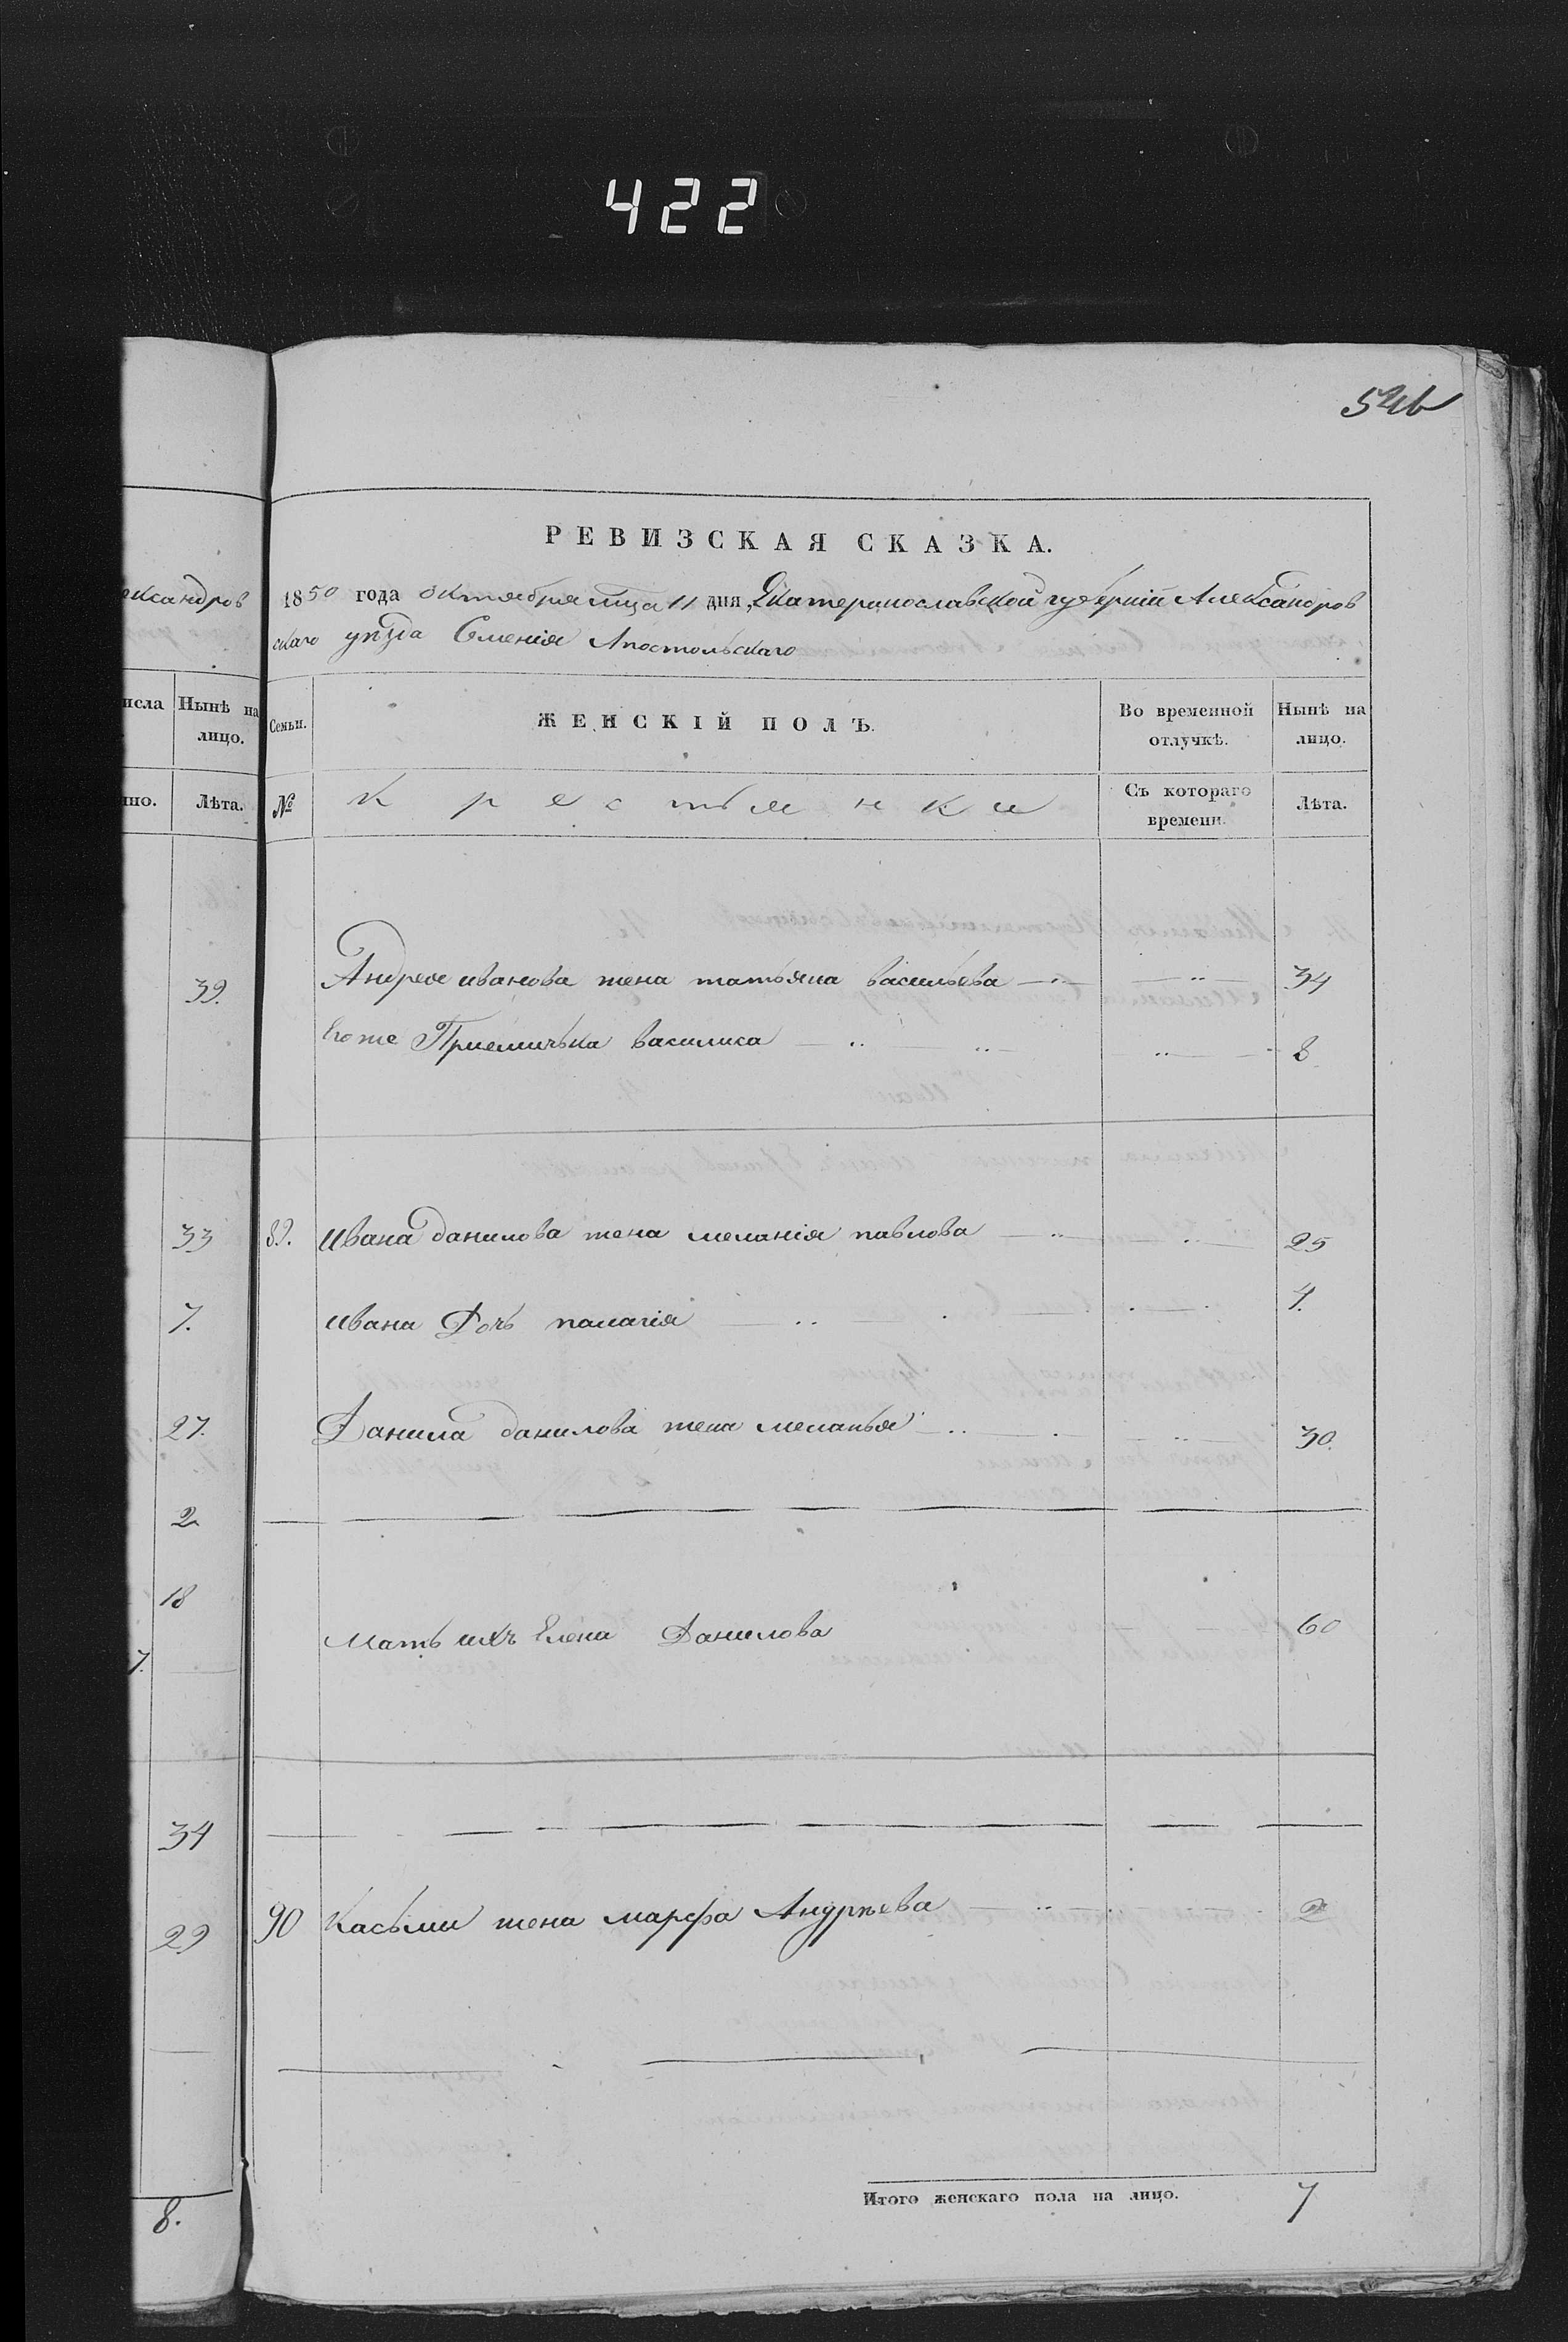 422
РЕВИЗСКАЯ СКАЗКА.
ександров
1850 года октября мца 11 дня, Екатеринославской губернiи Александров
скаго уѣзда Селенiя Апостольскаго
исла
Нынѣ на
лицо.
Семьи.
ЖЕНСКIЙ ПОЛЪ.
Во временной
отлучкѣ.
Нынѣ на
лицо.
Лѣта.
№
крестьянки
Съ котораго
времени.
Лѣта.
39.
Андрея иванова жена татьяна васильева 34
Его же Приемичька василиса 8
33
89. Ивана данилова жена меланiя павлова 25
7.
ивана Дочь палагiя 4.
27.
Данила данилова жена меланья 30.
2
18
Мать ихъ Елена Данилова 60
7.
34
29
90 Касьми жена марфа Андрѣева
8.
Итого женскаго пола на лицо. 7